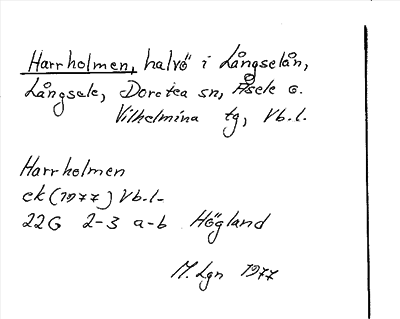 Harrholmen, halvö i Långselån,
Långsele, Dorotea sn, Åsele o.
Vilhelmina tg, Vb.l.
Harrholmen
ek (1977) Vb.l.
22G 2-3 a-b Högland
M. Lgn 1977